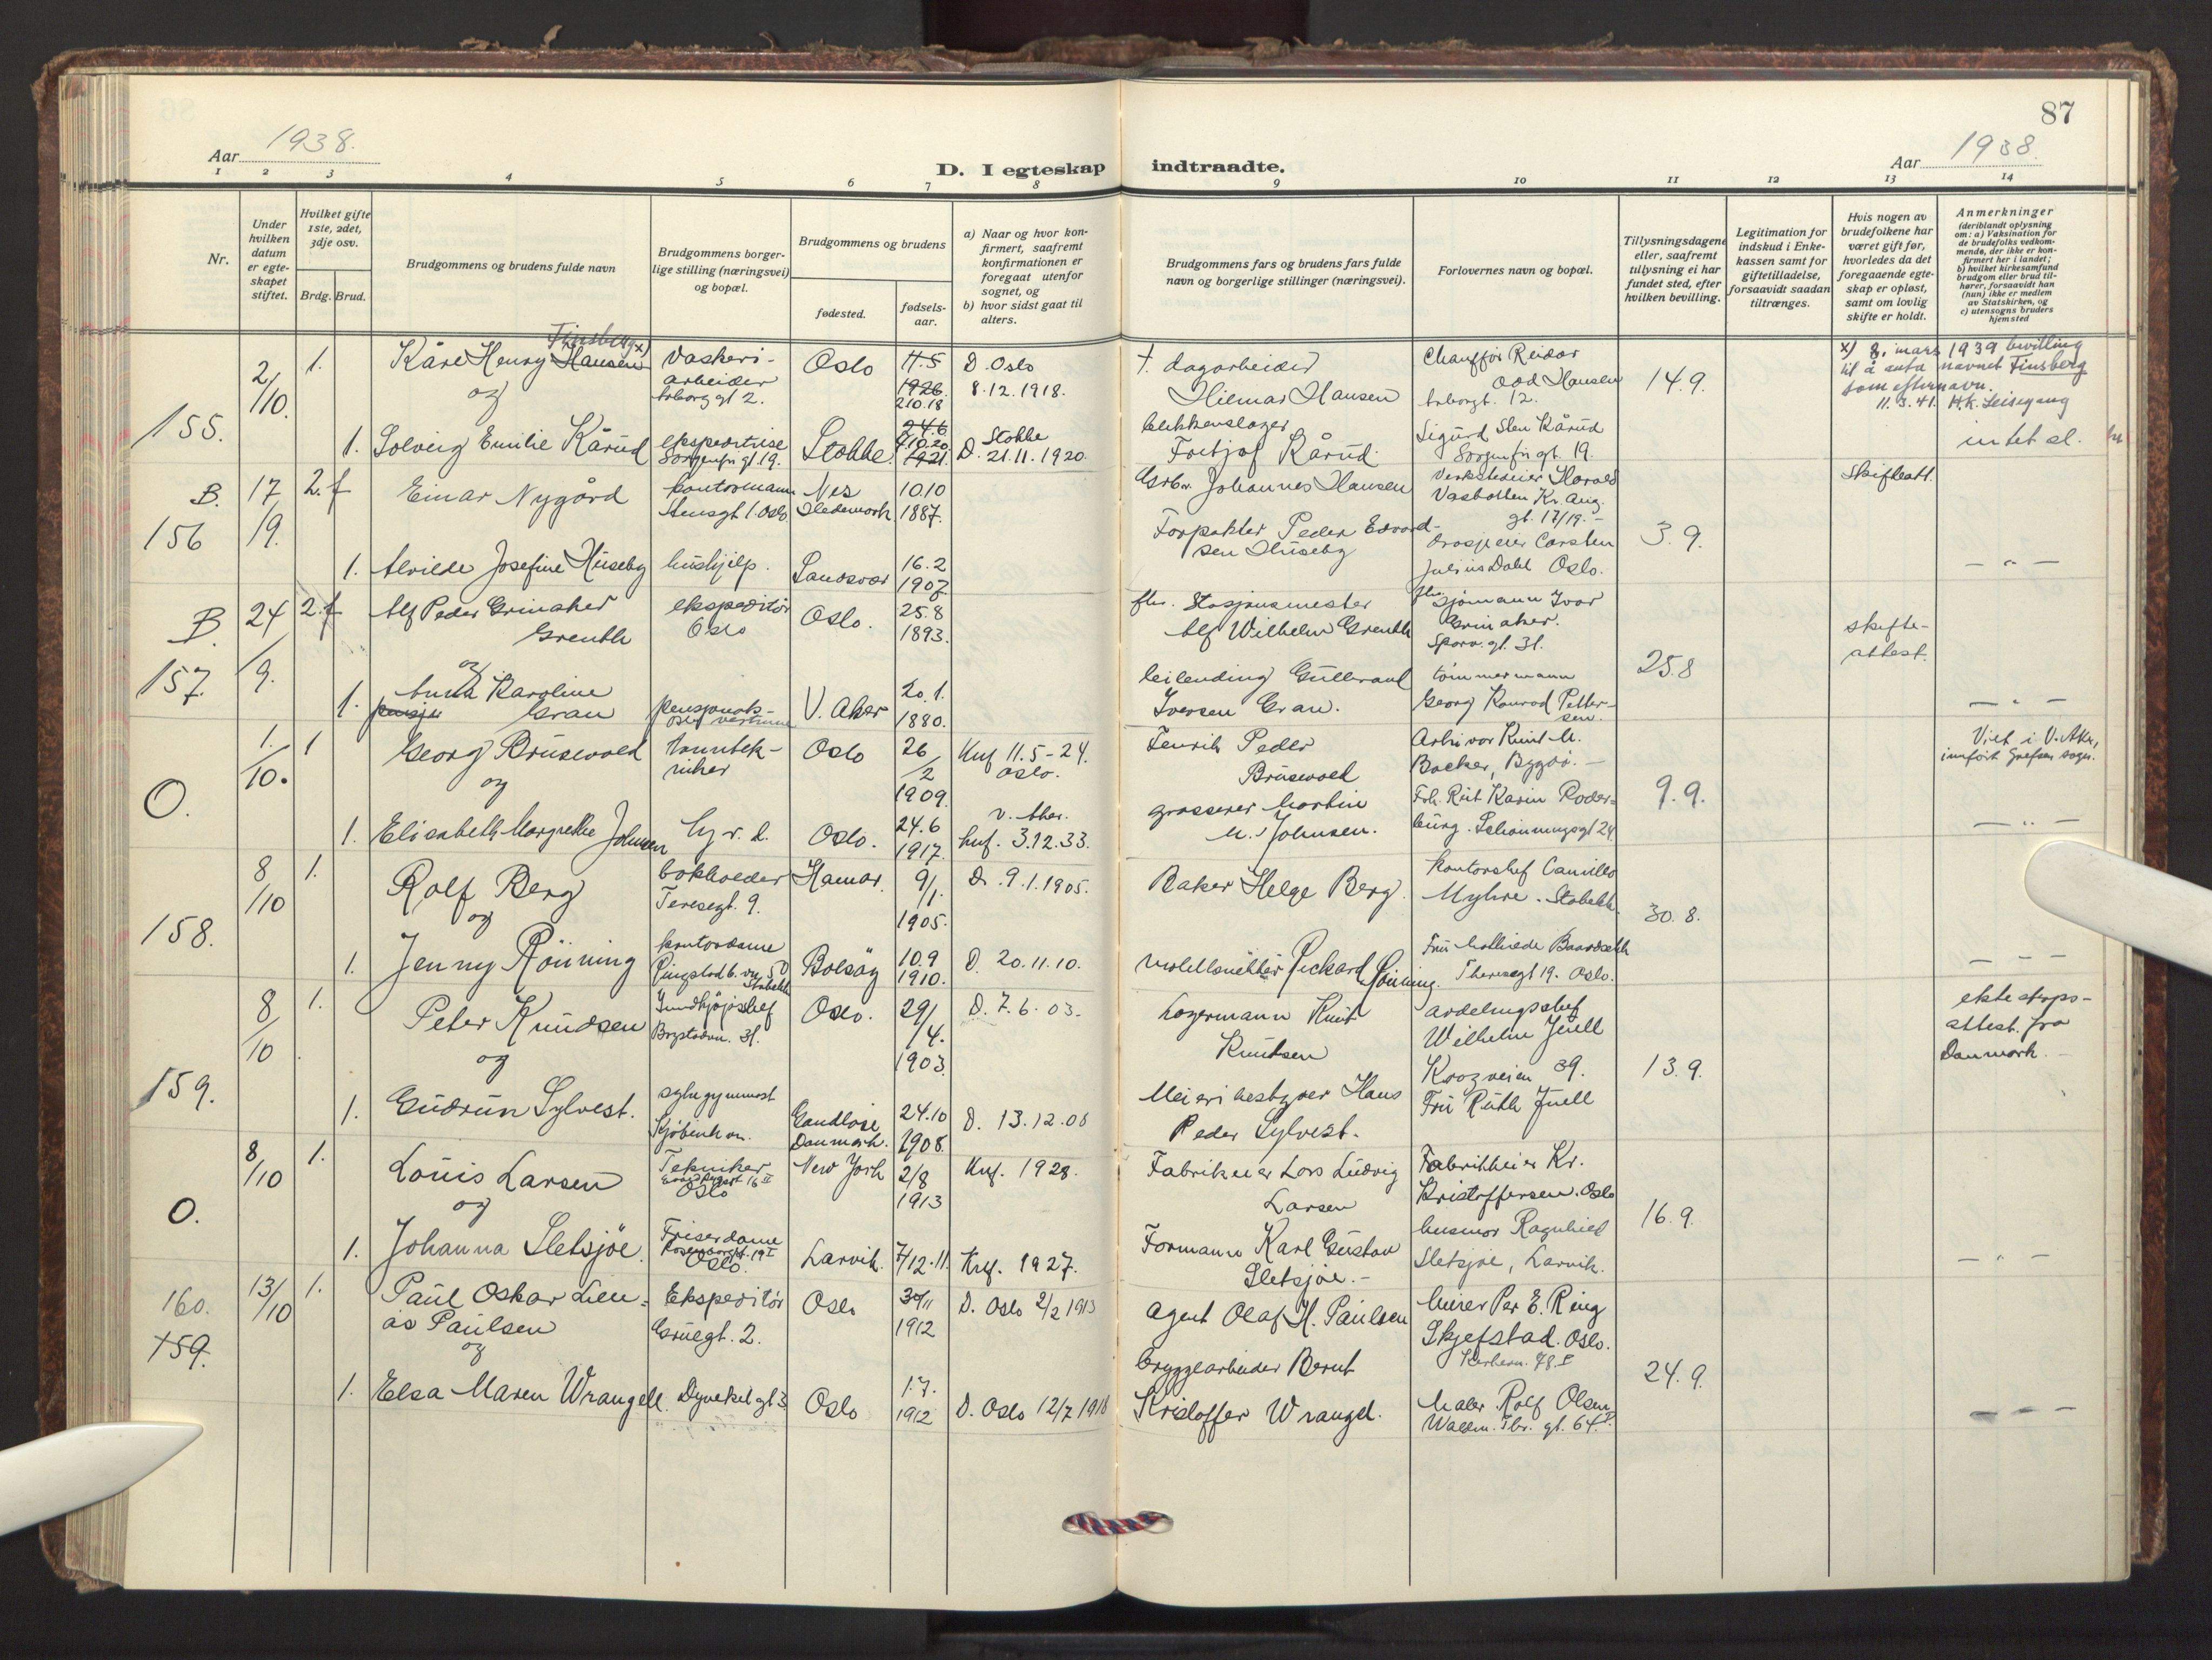 87
Aar 1938.
D. I egteskap indtraadte.
Aar 1938.
1 2 3 4 5 6 7 8 9 10 11 12 13 14
Nr.
Under hvilken datum er egteskapet stiftet.
Hvilket gifte 1ste, 2det, 3dje osv.
Brdg. Brud.
Brudgommens og brudens fulde navn
Brudgommens borgerlige stilling (næringsvei) og bopæl.
Brudgommens og brudens
fødested.
fødselsaar.
a) Naar og hvor konfirmert, saafremt konfirmationen er foregaat utenfor sognet, og
b) hvor sidst gaat til alters.
Brudgommens fars og brudens fars fulde navn og borgerlige stillinger (næringsvei).
Forlovernes navn og bopæl.
Tillysningsdagene eller, saafremt tillysning ei har fundet sted, efter hvilken bevilling.
Legitimation for indskud i Enkekassen samt for giftetilladelse, forsaavidt saadan tiltrænges.
Hvis nogen av brudefolkene har været gift før, hvorledes da det foregaaende egteskap er opløst, samt om lovlig skifte er holdt.
Anmerkninger
(deriblandt oplysning om: a) Vaksination for de brudefolks vedkommende, der ikke er konfirmert her i landet;
b) hvilket kirkesamfund brudgom eller brud tilhører, forsaavidt han (hun) ikke er medlem av Statskirken, og
c) utensogns bruders hjemsted
155.
2/10.
1.
Finsberg x)
Kåre Henry Hansen
og
vaskeriarbeider
gt 2.
Oslo
11.5
1926
2.10.18
D. Oslo
8.12.1918.
† dagarbeider
Hilmar Hansen
Chauffør Reidar
Odd Hansen
12.
14.9.
x) 8. mars 1939 bevilling
til å anta navnet Finsberg
som efternavn.
11.3.41. H.K. Leisegang
1. Solveig Emilie Kårud
ekspeditrise
Sorgenfri gt. 19.
Stokke
24.6
4.10.20
1921
Stokke
D. 21.11.1920
blikkenslager
Fritjof Kårud
Sigurd Sten Kårud
Sorgenfri gt. 19.
intet sl.
B.
156
17/9.
2. f
Einar Nygård
kontormann
Stensgt 1. Oslo
Nes
Hedemark
10.10
1887.
Gårdbr. Johannes Hansen
Verkseier Harald
Vasbotten Kr. Aug.
gt. 17/19. –
3.9.
Skifteatt.
1. Alvilde Josefine Huseby
hushjelp.
Sandsvær
16.2
1907
Forpakter Peder Edvardsen Huseby
Drosjeeier Carsten
Julius Dahl Oslo.
– " –
B.
157.
24/9.
2. f
Alf Peder Grinaker
Grenth
og
ekspeditør
Oslo
Oslo.
25.8
1893.
fhv. Stasjonsmester
Alf Wilhelm Grenth
fhv. Sjømann Ivar
Grinaker.
Sporv. gt. 31.
25.8
skifteattest.
1. Anna Karoline
Gran
pensjonatsvertinne
Oslo
V. Aker
20.1.
1880.
leilending Gulbrand
Iversen Gran.
tømmermann
Georg Konrad Pettersen.
– " –
O.
1./10.
1
Georg Brusevold
og
tanntekniker
Oslo
26/2
1909
Knf 11.5–24.
Oslo.
Fenrik Peder
Brusevold
Arkivar Knut A.
Backer, Bygdø. –
9.9.
Viet i V. Aker,
innført Grefsen sogn.
1. Elisabeth Margrethe Johnsen
Oslo.
24.6
1917.
V. Aker.
knf. 3.12.33.
grosserer Martin
M. Johnsen.
Frk. Rut Karin Roderburg. Schønningsgt 24
– " –
158.
8/10
1.
Rolf Berg
og
bokholder
Teresegt. 9.
Hamar.
9/1.
1905.
D. 9.1.1905.
Baker Helge Berg.
kontorshef Camillo
Myhre. Stabekk.
30.8.
1. Jenny Rönning
kontordame
Ringstadb. vn 50
Stabekk
Bolsøy
10.9
1910.
D. 20.11.10.
Rickard Rönning.
Fru Mathilde
Theresegt 19. Oslo.
– – –
159.
8/10
1.
Peter Knudsen
og
Innkjøpschef
31.
Oslo.
29/4.
1903.
D. 7.6.03.
Lagermann Knut
Knutsen
avdelingschef
Wilhelm Juell
Krogveien 39.
13.9.
ekteskapsattest fra
Danmark. –
1. Gudrun Sylvest.
sykegymnast
Kjøbenhavn.
Gandløse
Danmark.
24.10
1908.
D. 13.12.08
Meieribestyrer Hans
Peder Sylvest.
Fru Ruth Juell
O.
8/10
1.
Louis Larsen
og
Tekniker
Oslo
New York
2/8
1913
Knf. 1928.
Fabrikeier Lars Ludvig
Larsen
Fabrikkeier Kr.
Kristoffersen. Oslo
16.9.
1. Johanna Sletsjøe
Friserdame
Rosenborggt. 19 I
Oslo.
Larvik.
7/12.11.
Knf. 1927.
Formann Karl Gustav
Sletsjøe. –
husmor Ragnhild
Sletsjøe, Larvik.
– " –
160.
159.
13/10
1.
Paul Oskar Lien=
ås Paulsen
og
Ekspeditør
Gruegt. 2.
Oslo
30/11
1912
D. Oslo 2/2 1913
Agent Olaf H. Paulsen
Murer Per E. Ring
Skjefstad. Oslo.
78 I
24.9.
1. Elsa Maren Wrangell.
Dyvekes gt 3
Oslo
1.7.
1912
D. Oslo 12/7 1918
Bryggearbeider Bernt
Kristoffer Wrangel.
Maler Rolf Olsen
Waldm. Thr. gt. 64 I.
– " –